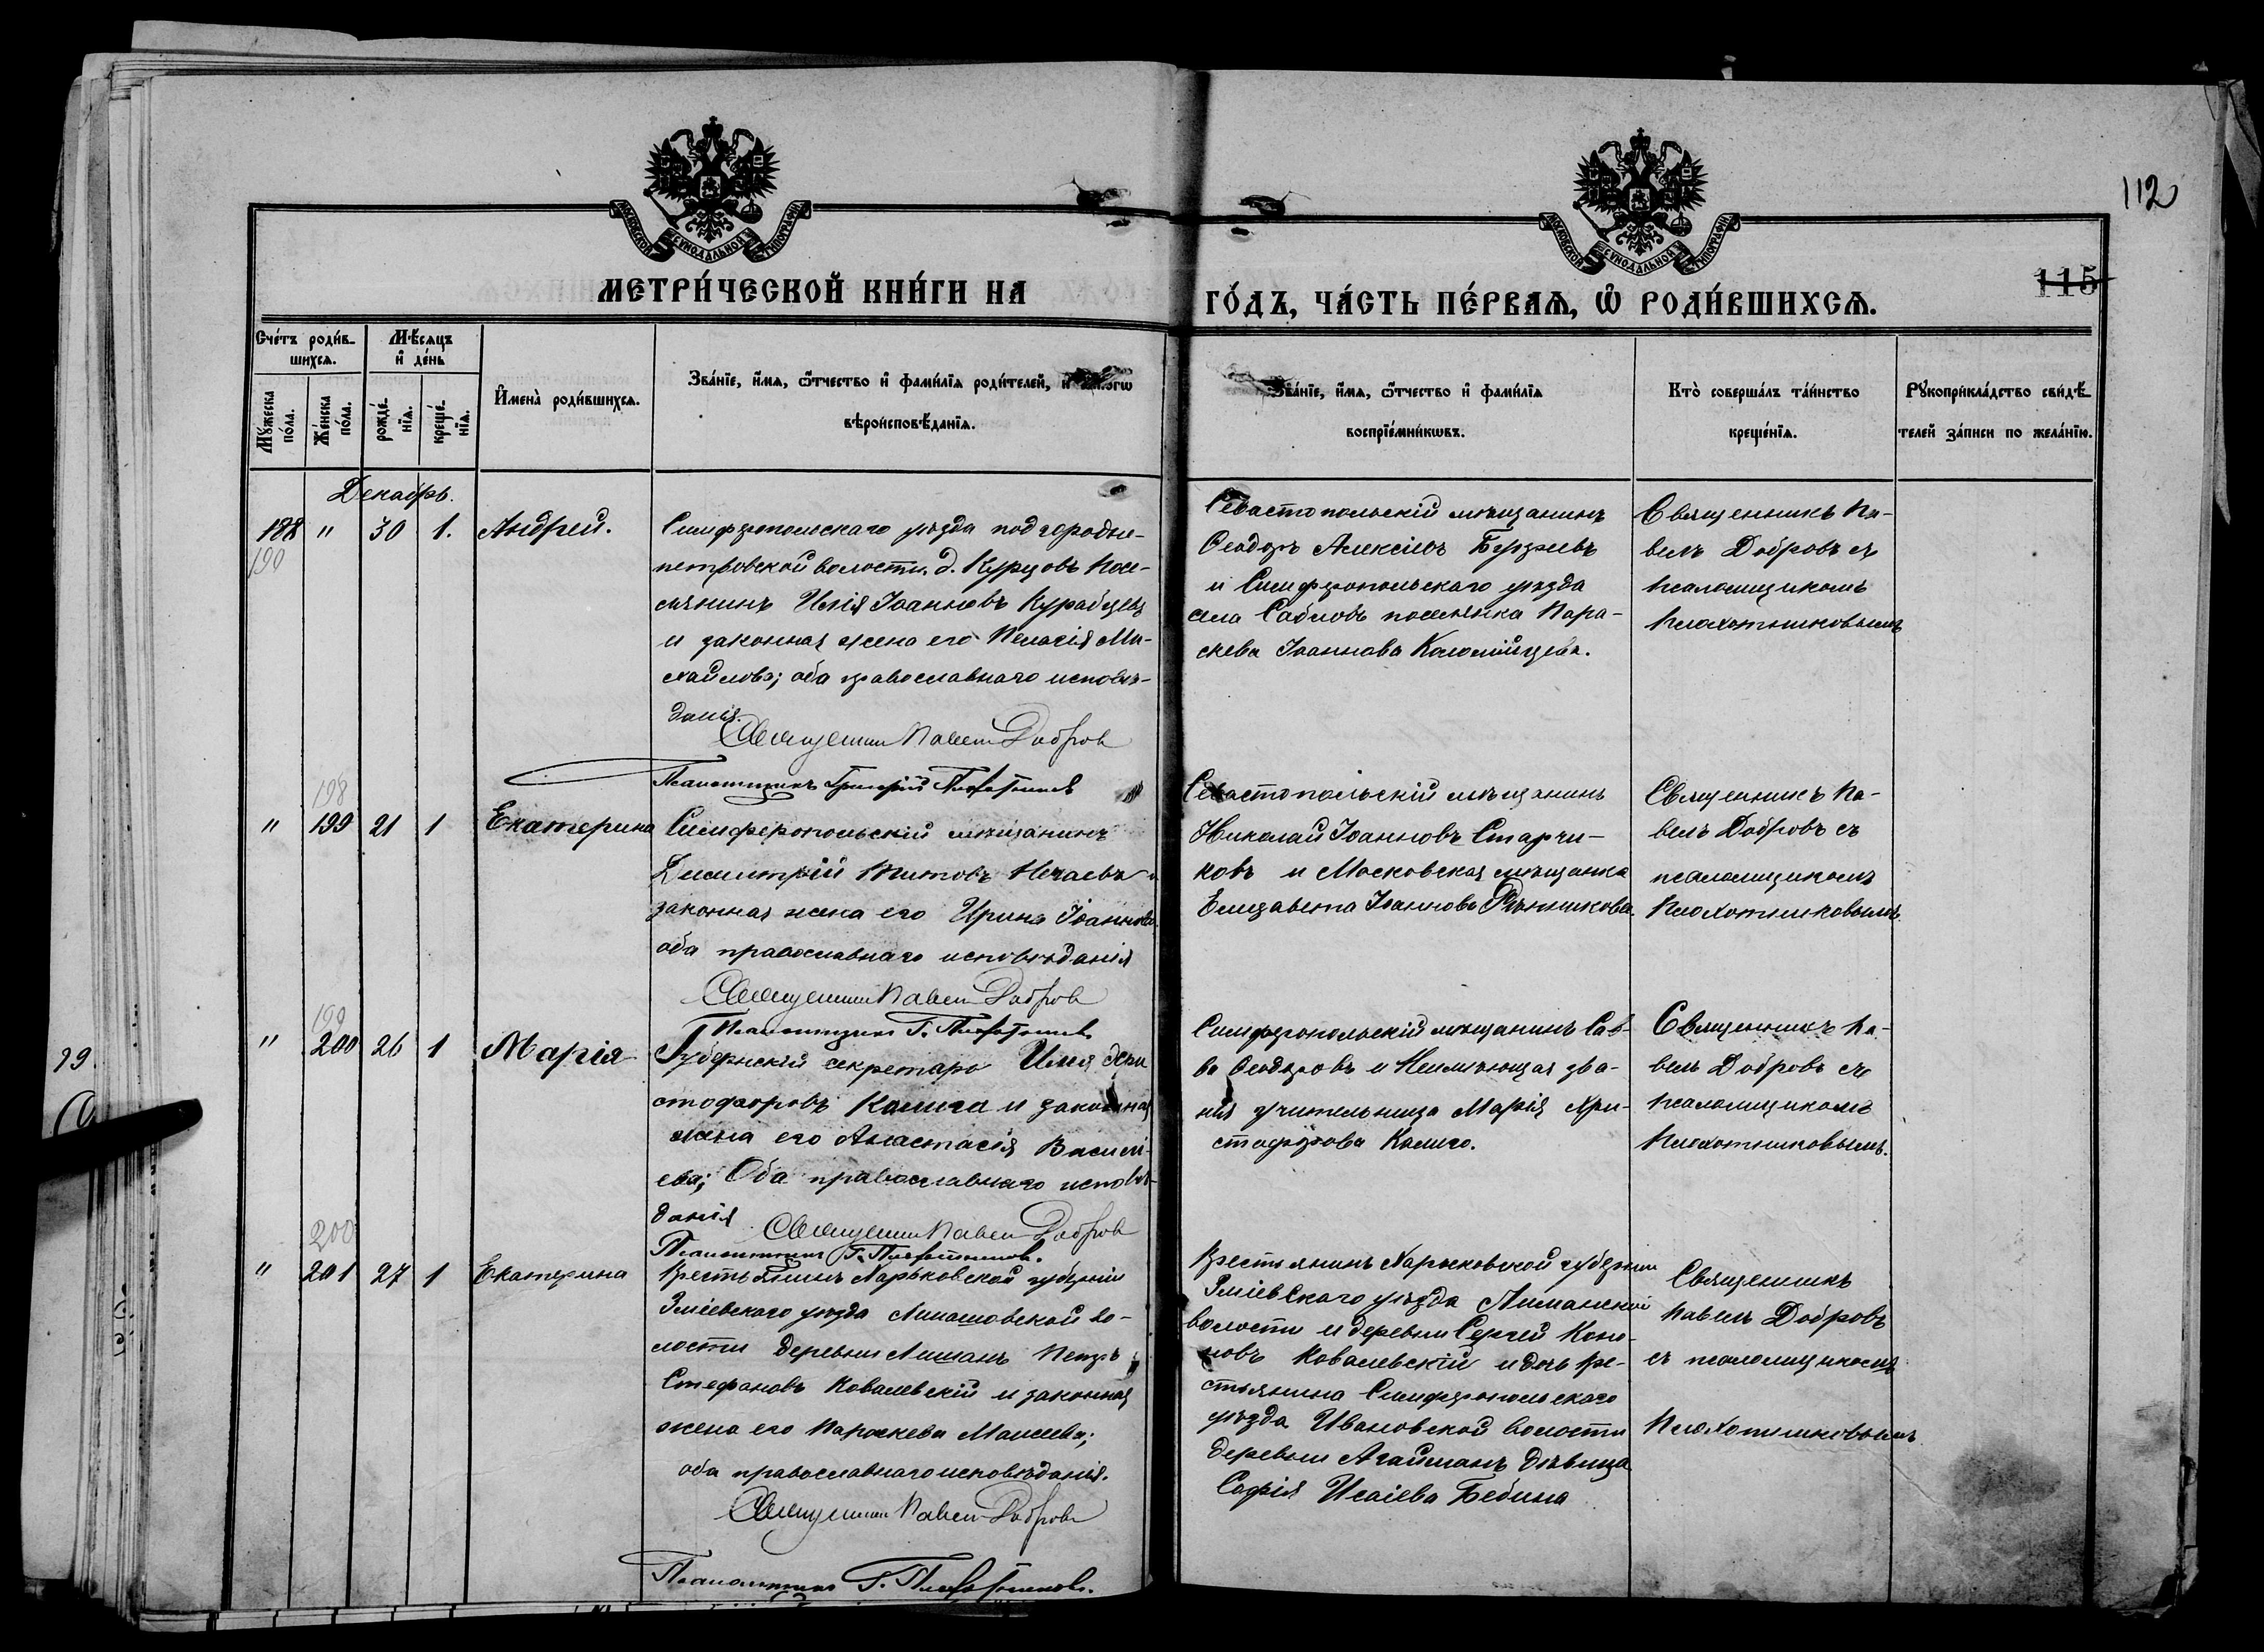 112
115
МОСКОВСКОЙ СѴНОДАЛЬНОЙ ТИПОГРАФІИ
МОСКОВСКОЙ СѴНОДАЛЬНОЙ ТИПОГРАФІИ
МЕТРИ́ЧЕСКОЙ КНИ́ГИ НА
ГО́ДЪ, ЧА́СТЬ ПЕ́РВАѦ, Ѡ҆ РОДИ́ВШИХСѦ.
Сче́тъ роди́в-
шихсѧ.
Мѣ́сѧцъ
и҆ де́нь
Мꙋжеска
по́ла.
Же́нска
по́ла.
рожде́-
нїѧ.
креще́-
нїѧ.
И҆мена̀ роди́вшихсѧ.
Зва́нїе, и҆́мѧ, ѻ҆́тчество и҆ фами́лїѧ роди́телей, и҆
вѣроисповѣ́данїѧ.
Зва́нїе, и҆́мѧ, ѻ҆́тчество и҆ фами́лїѧ
воспрїе́мникѡвъ.
Кто̀ соверша́лъ та́инство
креще́нїѧ.
Рꙋкоприкла́дство свидѣ́-
телей за́писи по жела́нїю.
Декабрь.
188 " 30 1. Андрей.
190
Симферопольскаго уѣзда подгородне-
петровской волости д. Курцовъ посе-
лянинъ Илія Іоанновъ
и законная жена его Пелагія Ми-
хайлова; оба православнаго исповѣ-
данія.
Священник Павел Добров
Псаломщикъ Григорій Плохотников
Севастопольскій мѣщанинъ
Ѳеодоръ Алексіевъ
и Симферопольскаго уѣзда
села Сабловъ поселянка Пара-
скева Іоаннова Коломійцева.
Священникъ Па-
велъ Добровъ съ
псаломщикомъ
Плохотниковымъ
198
" 199 21 1 Екатерина
Симферопольскій мѣщанинъ
Димитрій Титовъ Нечаевъ и
законная жена его Ирина Іоаннова
оба православнаго исповѣданія
Священник Павел Добров
Псаломщик Г. Плохотников
Севастопольскій мѣщанинъ
Николай Іоанновъ Старчи-
ковъ и Московская мѣщанка
Елизавета Іоаннова
Священникъ Па-
велъ Добровъ съ
псаломщикомъ
Плохотниковымъ.
199
" 200 26 1 Марія
Губернскій секретарь Илія Хри
стофоровъ Калига и законная
жена его Анастасія Василі-
ева; Оба православнаго исповѣ-
данія
Священник Павел Добров
Псаломщик Г. Плохотников.
Симферопольскій мѣщанинъ Сав-
ва Ѳеодоровъ и Неимѣющая зва-
нія учительница Марія Хри-
стофорова Калиго.
Священникъ Па-
велъ Добровъ съ
псаломщикомъ
Плохотниковымъ.
200
" 201 27 1 Екатерина
Крестьянинъ Харьковской губерніи
Зміевскаго уѣзда во-
лости деревни Лиманъ Петръ
Стефановъ Ковалевскій и законная
жена его Параскева Моисеева;
оба православнаго исповѣданія.
Священник Павел Добров
Псаломщик Г. Плохотников.
Крестьянинъ Харьковской губерніи
Зміевскаго уѣзда Лиманской
волости и деревни Сергей Коно-
новъ Ковалевскій и дочь кре-
стьянина Симферопольскаго
уѣзда Ивановской волости
деревни дѣвица
Софія Исаіева Бебина
Священникъ
Павелъ Добровъ
съ псаломщикомъ
Плохотниковымъ